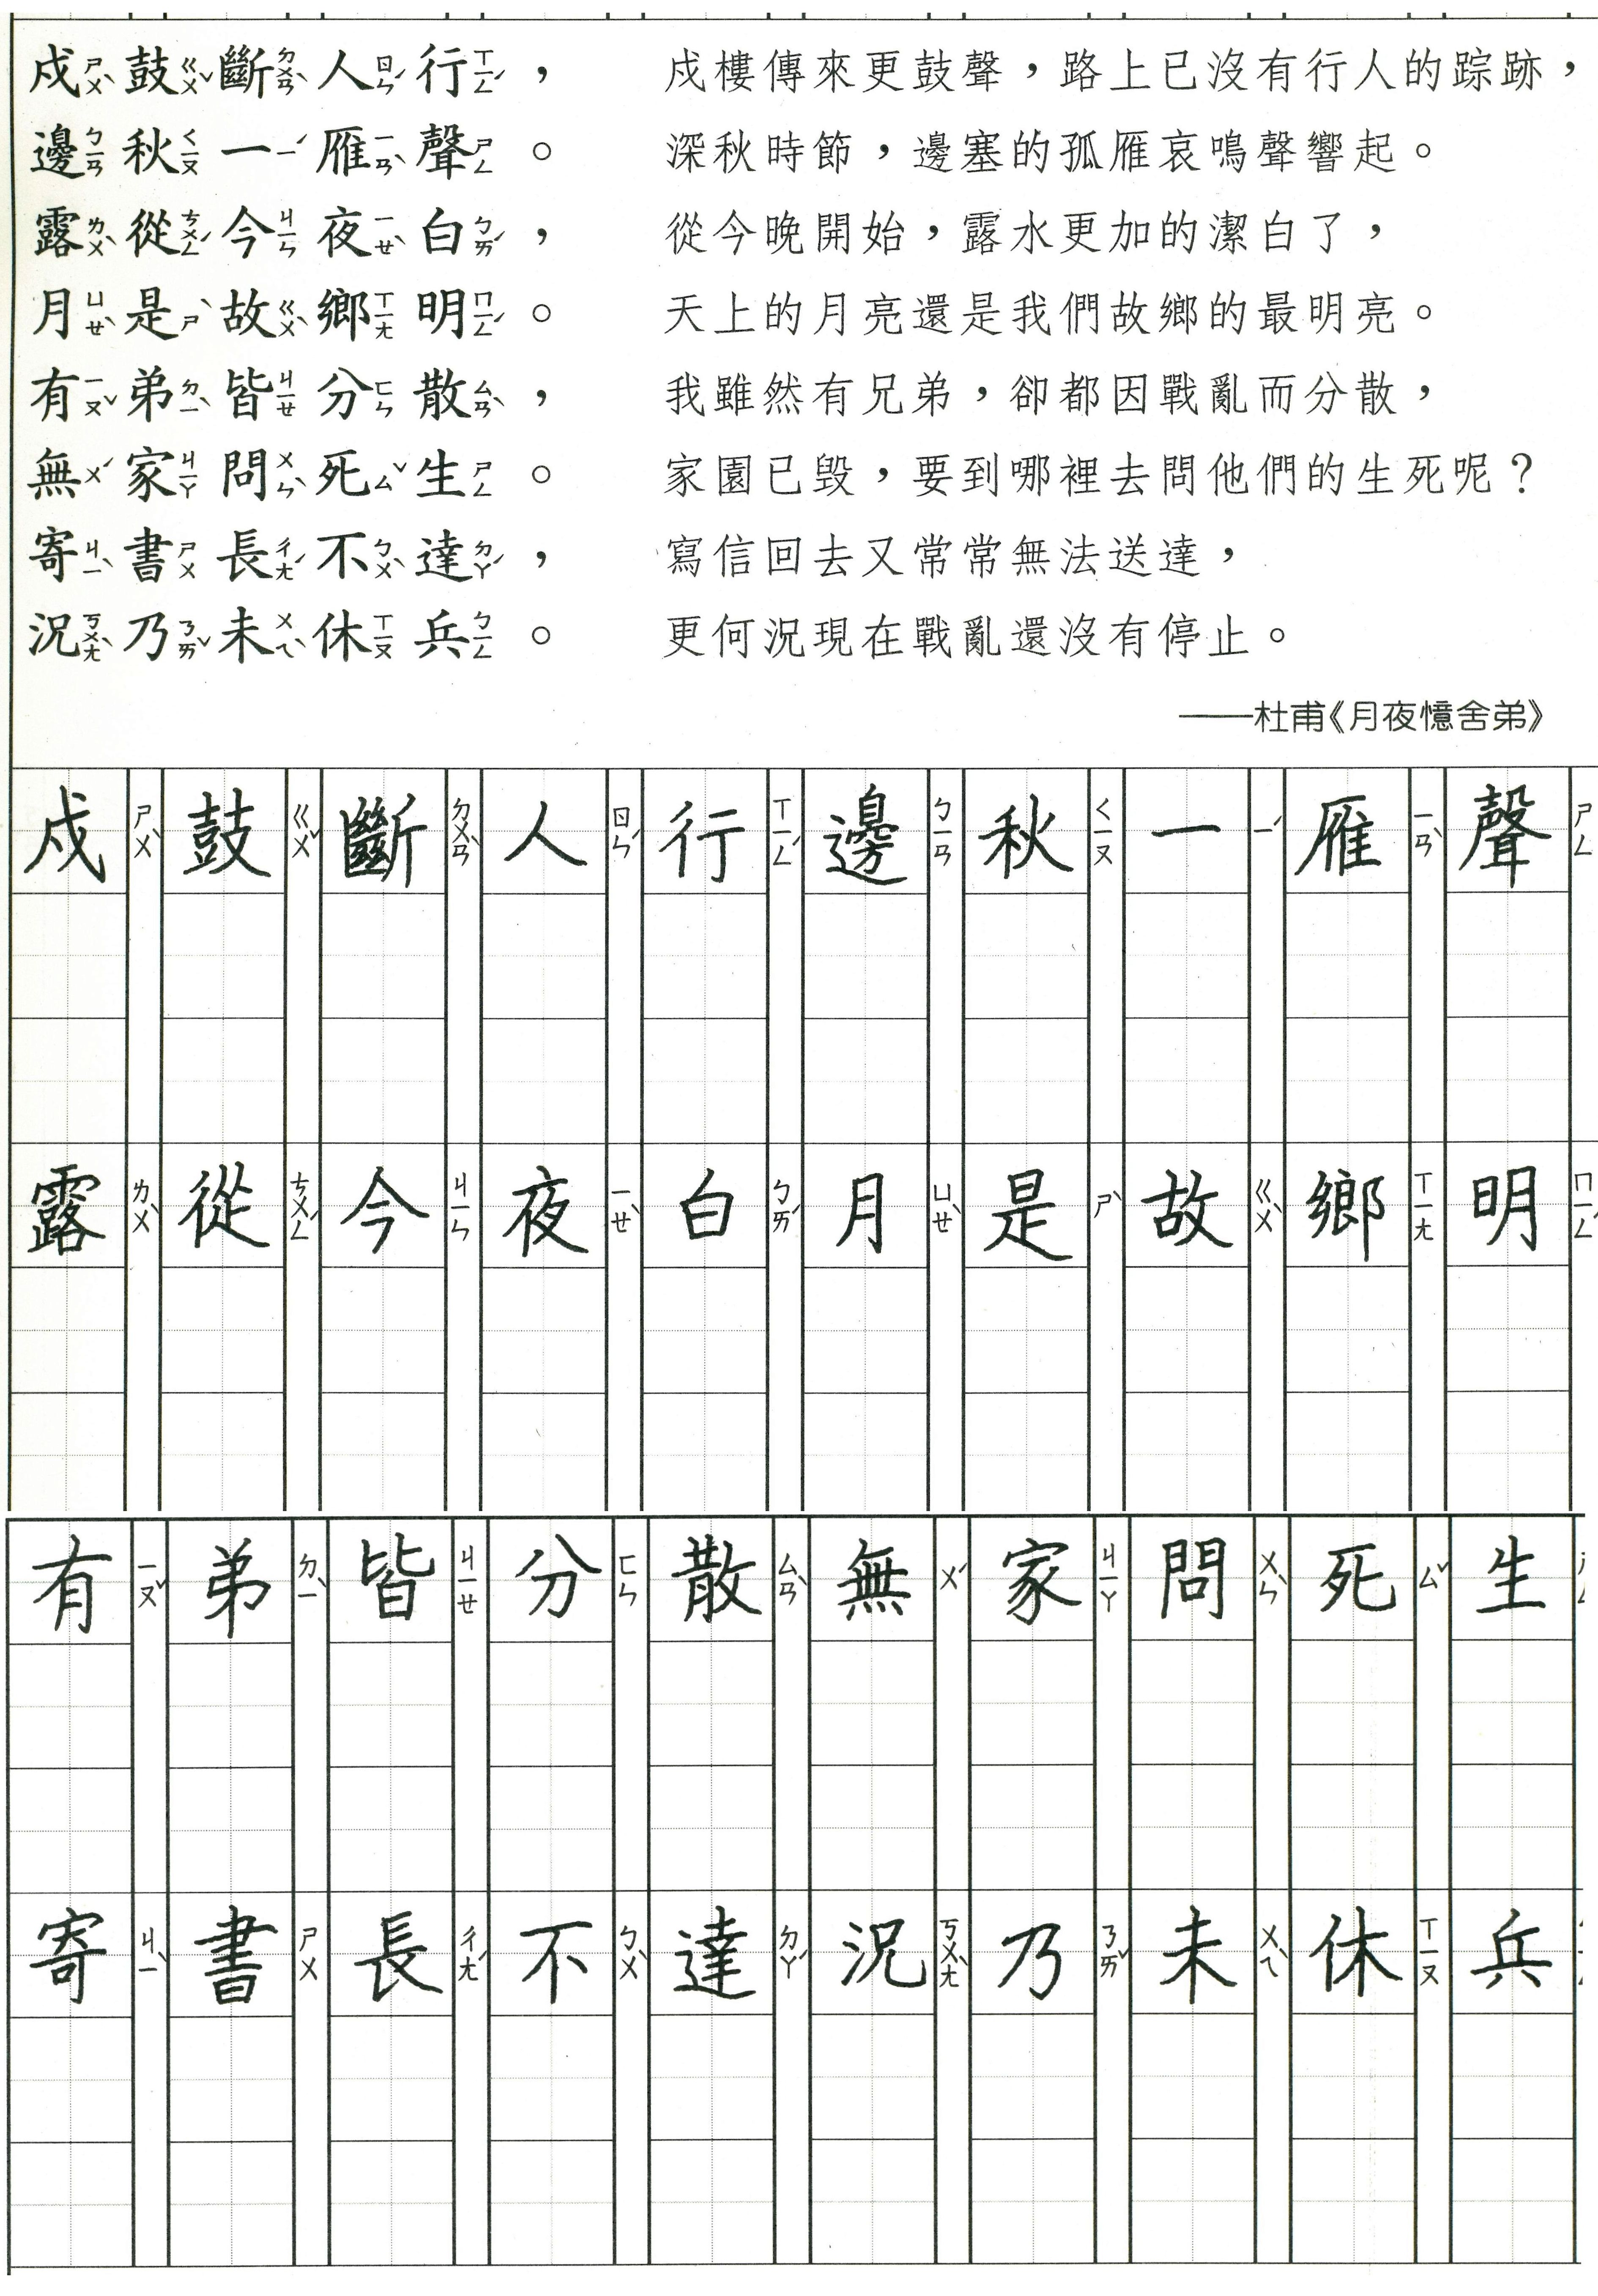 戍ㄕㄨˋ鼓ㄍㄨˇ斷ㄉㄨㄢˋ人ㄖㄣˊ行ㄒㄧㄥˊ， 戍樓傳來更鼓聲，路上已沒有行人的踪跡，
邊ㄅㄧㄢ秋ㄑㄧㄡ一ㄧˊ雁ㄧㄢˋ聲ㄕㄥ。 深秋時節，邊塞的孤雁哀鳴聲響起。
露ㄌㄨˋ從ㄘㄨㄥˊ今ㄐㄧㄣ夜ㄧㄝˋ白ㄅㄞˊ， 從今晚開始，露水更加的潔白了，
月ㄩㄝˋ是ㄕˋ故ㄍㄨˋ鄉ㄒㄧㄤ明ㄇㄧㄥˊ。 天上的月亮還是我們故鄉的最明亮。
有ㄧㄡˇ弟ㄉㄧˋ皆ㄐㄧㄝ分ㄈㄣ散ㄙㄢˋ， 我雖然有兄弟，卻都因戰亂而分散，
無ㄨˊ家ㄐㄧㄚ問ㄨㄣˋ死ㄙˇ生ㄕㄥ。 家園已毀，要到哪裡去問他們的生死呢？
寄ㄐㄧˋ書ㄕㄨ長ㄔㄤˊ不ㄅㄨˋ達ㄉㄚˊ， 寫信回去又常常無法送達，
況ㄎㄨㄤˋ乃ㄋㄞˇ未ㄨㄟˋ休ㄒㄧㄡ兵ㄅㄧㄥ。 更何況現在戰亂還沒有停止。
——杜甫《月夜憶舍弟》
戍ㄕㄨˋ 鼓ㄍㄨˇ 斷ㄉㄨㄢˋ 人ㄖㄣˊ 行ㄒㄧㄥˊ 邊ㄅㄧㄢ 秋ㄑㄧㄡ 一ㄧˊ 雁ㄧㄢˋ 聲ㄕㄥ
露ㄌㄨˋ 從ㄘㄨㄥˊ 今ㄐㄧㄣ 夜ㄧㄝˋ 白ㄅㄞˊ 月ㄩㄝˋ 是ㄕˋ 故ㄍㄨˋ 鄉ㄒㄧㄤ 明ㄇㄧㄥˊ
有ㄧㄡˇ 弟ㄉㄧˋ 皆ㄐㄧㄝ 分ㄈㄣ 散ㄙㄢˋ 無ㄨˊ 家ㄐㄧㄚ 問ㄨㄣˋ 死ㄙˇ 生
寄ㄐㄧˋ 書ㄕㄨ 長ㄔㄤˊ 不ㄅㄨˋ 達ㄉㄚˊ 況ㄎㄨㄤˋ 乃ㄋㄞˇ 未ㄨㄟˋ 休ㄒㄧㄡ 兵